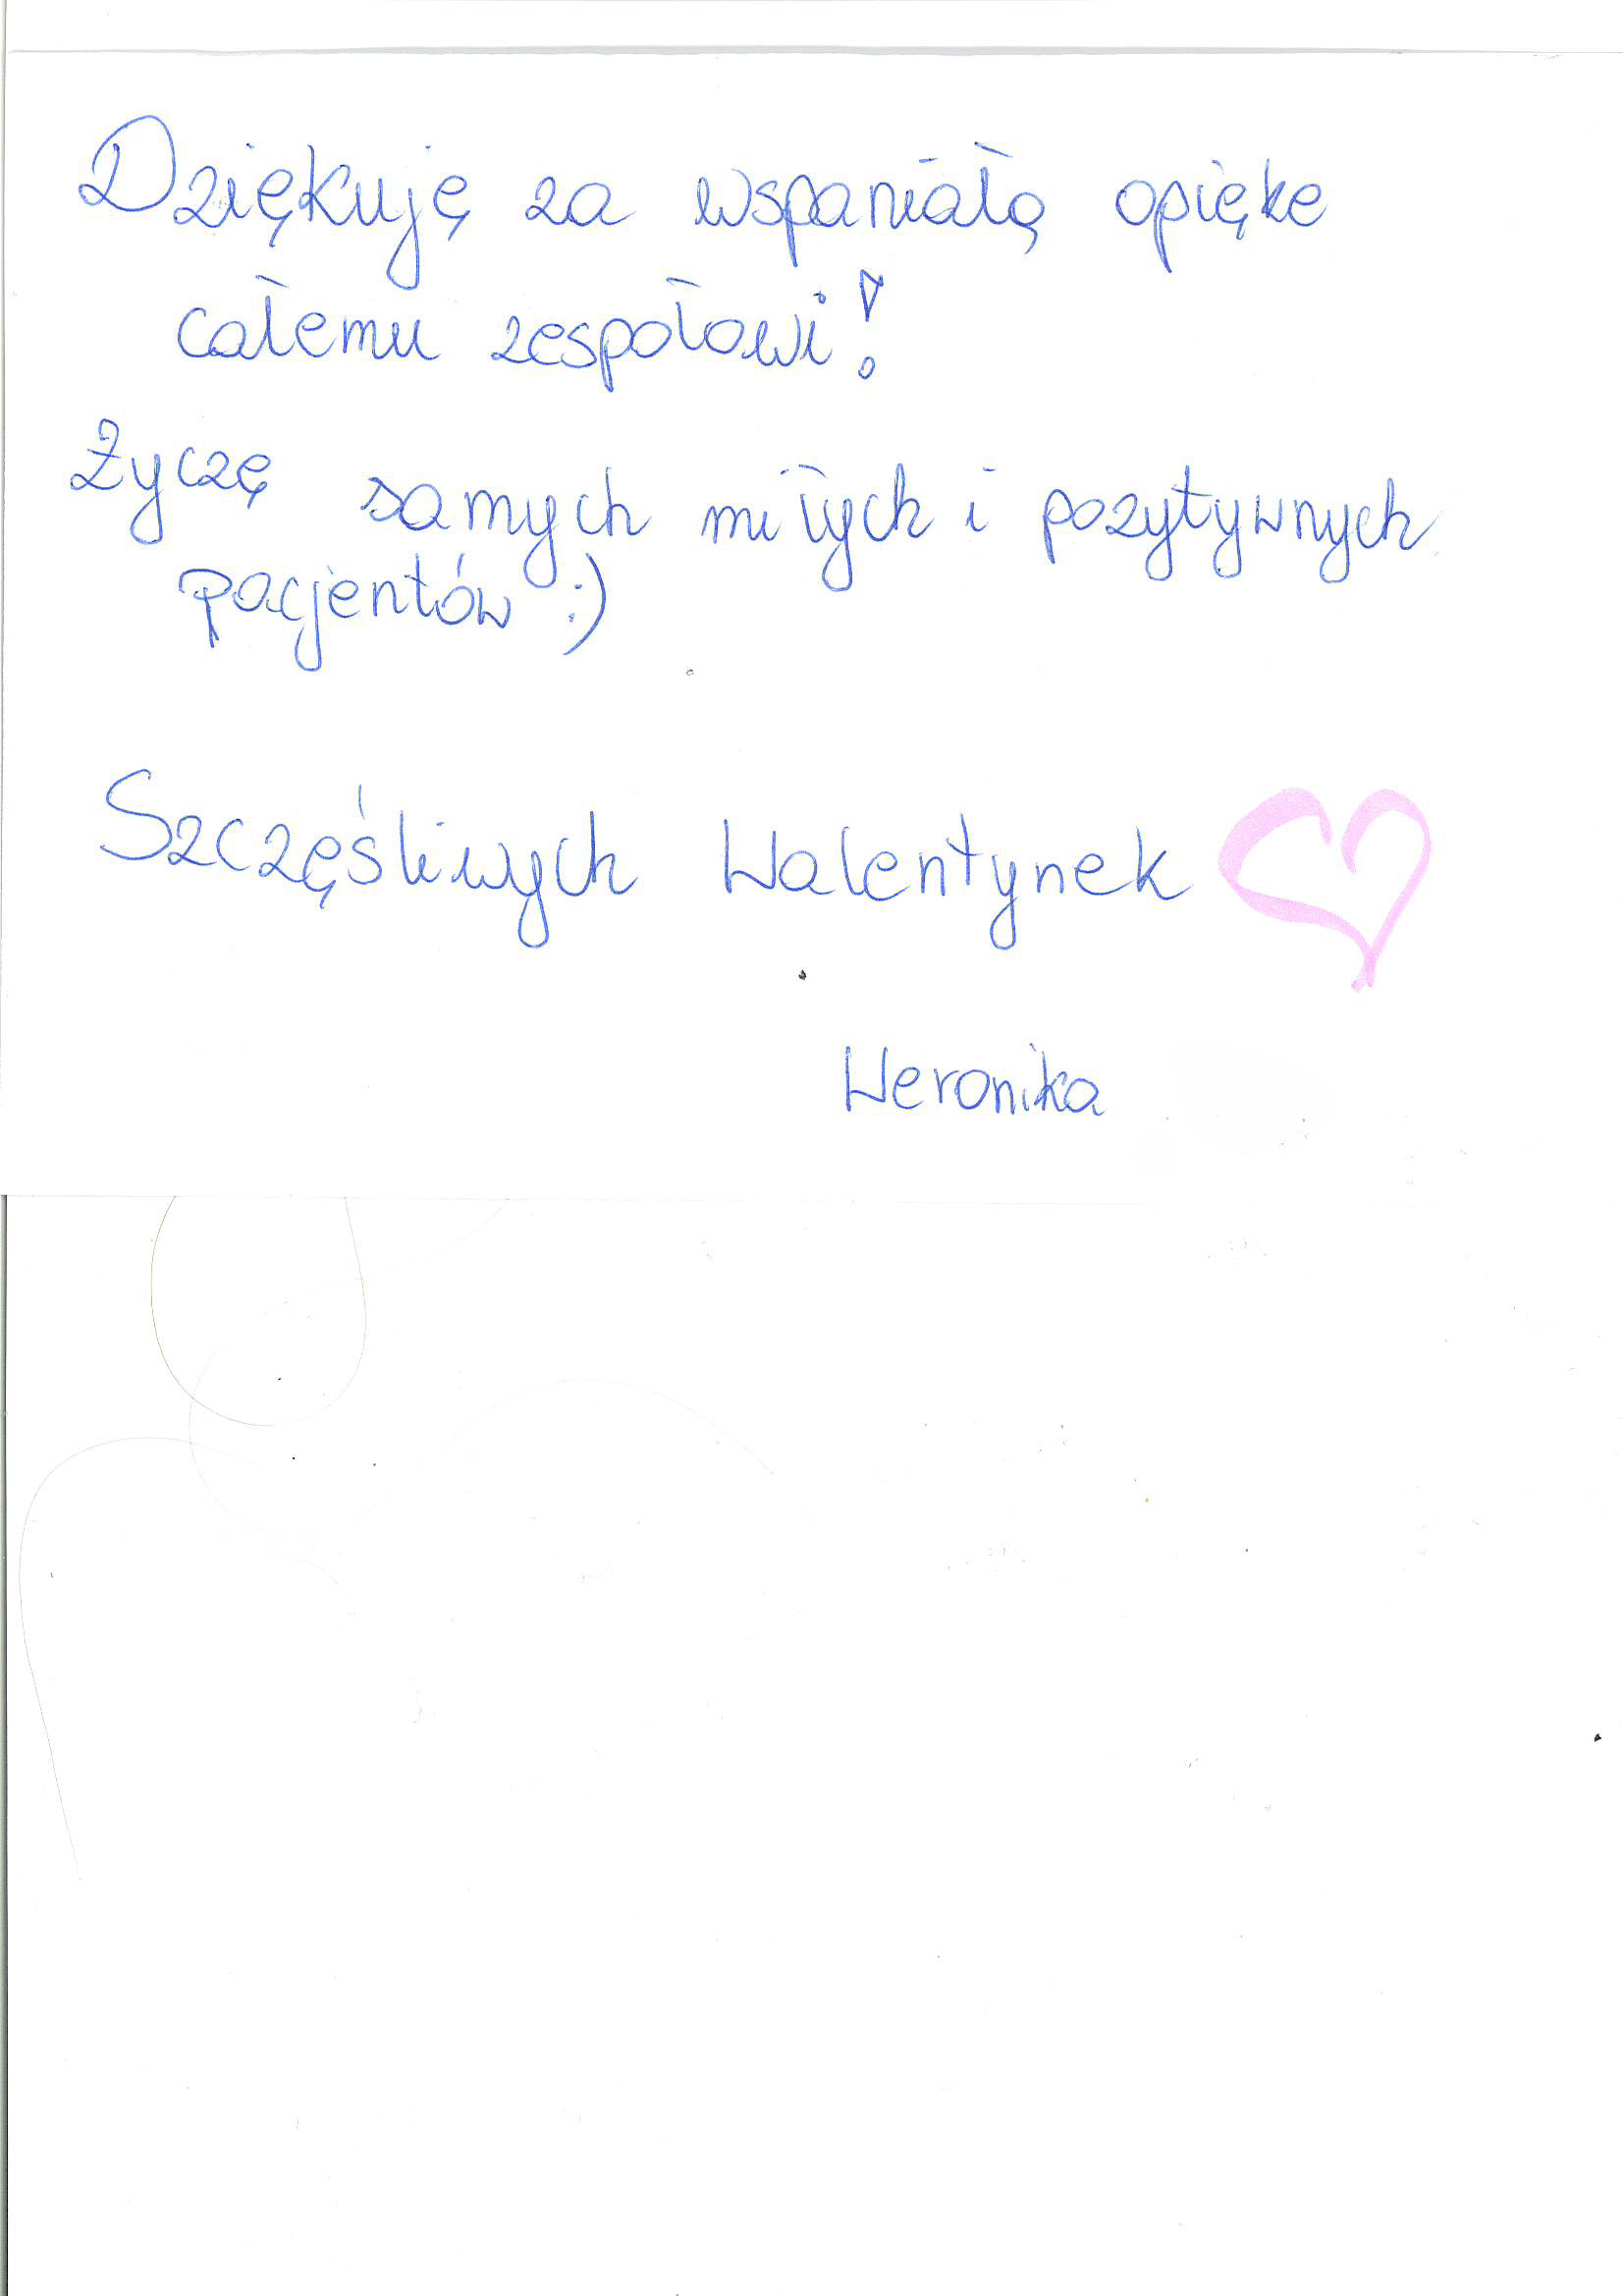 Dziękuję za wspaniałą opięke
całemu zespołowi!
Życzę samych miłych i pozytywnych
pacjentów :)
Szczęśliwych Walentynek
Weronika